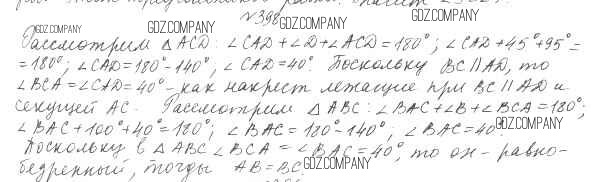 №398
GDZ.COMPANY
GDZ.COMPANY
GDZ.COMPANY
GDZ.COMPANY
Рассмотрим △ ACD: ∠CAD+∠D+∠ACD=180°; ∠CAD+45°+95°=
=180°; ∠CAD=180°-140°, ∠CAD=40°. Поскольку BC∥AD, то
∠BCA=∠CAD=40° - как накрест лежащие при BC∥AD и
секущей AC. Рассмотрим △ABC: ∠BAC+∠B+∠BCA=180°;
GDZ.COMPANY
∠BAC+100°+40°=180°; ∠BAC=180°-140°, ∠BAC=40°
GDZ.COMPANY
Поскольку в △ABC ∠BCA=∠BAC=40°, то он - равно-
бедренный, тогда AB=BC.
GDZ.COMPANY